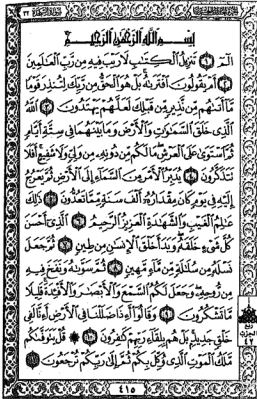 ٣٢
بِسْمِ ٱللَّهِ ٱلرَّحْمَٰنِ ٱلرَّحِيمِ
الٓمٓ ۝١ تَنزِيلُ ٱلْكِتَٰبِ لَا رَيْبَ فِيهِ مِن رَّبِّ ٱلْعَٰلَمِينَ
۝٢ أَمْ يَقُولُونَ ٱفْتَرَىٰهُ بَلْ هُوَ ٱلْحَقُّ مِن رَّبِّكَ لِتُنذِرَ قَوْمًا
مَّآ أَتَىٰهُم مِّن نَّذِيرٍ مِّن قَبْلِكَ لَعَلَّهُمْ يَهْتَدُونَ ۝٣ ٱللَّهُ
ٱلَّذِى خَلَقَ ٱلسَّمَٰوَٰتِ وَٱلْأَرْضَ وَمَا بَيْنَهُمَا فِى سِتَّةِ أَيَّامٍ
ثُمَّ ٱسْتَوَىٰ عَلَى ٱلْعَرْشِ مَا لَكُم مِّن دُونِهِۦ مِن وَلِىٍّ وَلَا شَفِيعٍ أَفَلَا
تَتَذَكَّرُونَ ۝٤ يُدَبِّرُ ٱلْأَمْرَ مِنَ ٱلسَّمَآءِ إِلَى ٱلْأَرْضِ ثُمَّ يَعْرُجُ
إِلَيْهِ فِى يَوْمٍ كَانَ مِقْدَارُهُۥٓ أَلْفَ سَنَةٍ مِّمَّا تَعُدُّونَ ۝٥ ذَٰلِكَ
عَٰلِمُ ٱلْغَيْبِ وَٱلشَّهَٰدَةِ ٱلْعَزِيزُ ٱلرَّحِيمُ ۝٦ ٱلَّذِىٓ أَحْسَنَ
كُلَّ شَىْءٍ خَلَقَهُۥ وَبَدَأَ خَلْقَ ٱلْإِنسَٰنِ مِن طِينٍ ۝٧ ثُمَّ جَعَلَ
نَسْلَهُۥ مِن سُلَٰلَةٍ مِّن مَّآءٍ مَّهِينٍ ۝٨ ثُمَّ سَوَّىٰهُ وَنَفَخَ فِيهِ
مِن رُّوحِهِۦ وَجَعَلَ لَكُمُ ٱلسَّمْعَ وَٱلْأَبْصَٰرَ وَٱلْأَفْـِٔدَةَ قَلِيلًا
مَّا تَشْكُرُونَ ۝٩ وَقَالُوٓا۟ أَءِذَا ضَلَلْنَا فِى ٱلْأَرْضِ أَءِنَّا لَفِى
خَلْقٍ جَدِيدٍ بَلْ هُم بِلِقَآءِ رَبِّهِمْ كَٰفِرُونَ ۝١٠ ۞ قُلْ يَتَوَفَّىٰكُم
مَّلَكُ ٱلْمَوْتِ ٱلَّذِى وُكِّلَ بِكُمْ ثُمَّ إِلَىٰ رَبِّكُمْ تُرْجَعُونَ ۝١١
ربع
الحزب
٤٢
٤١٥